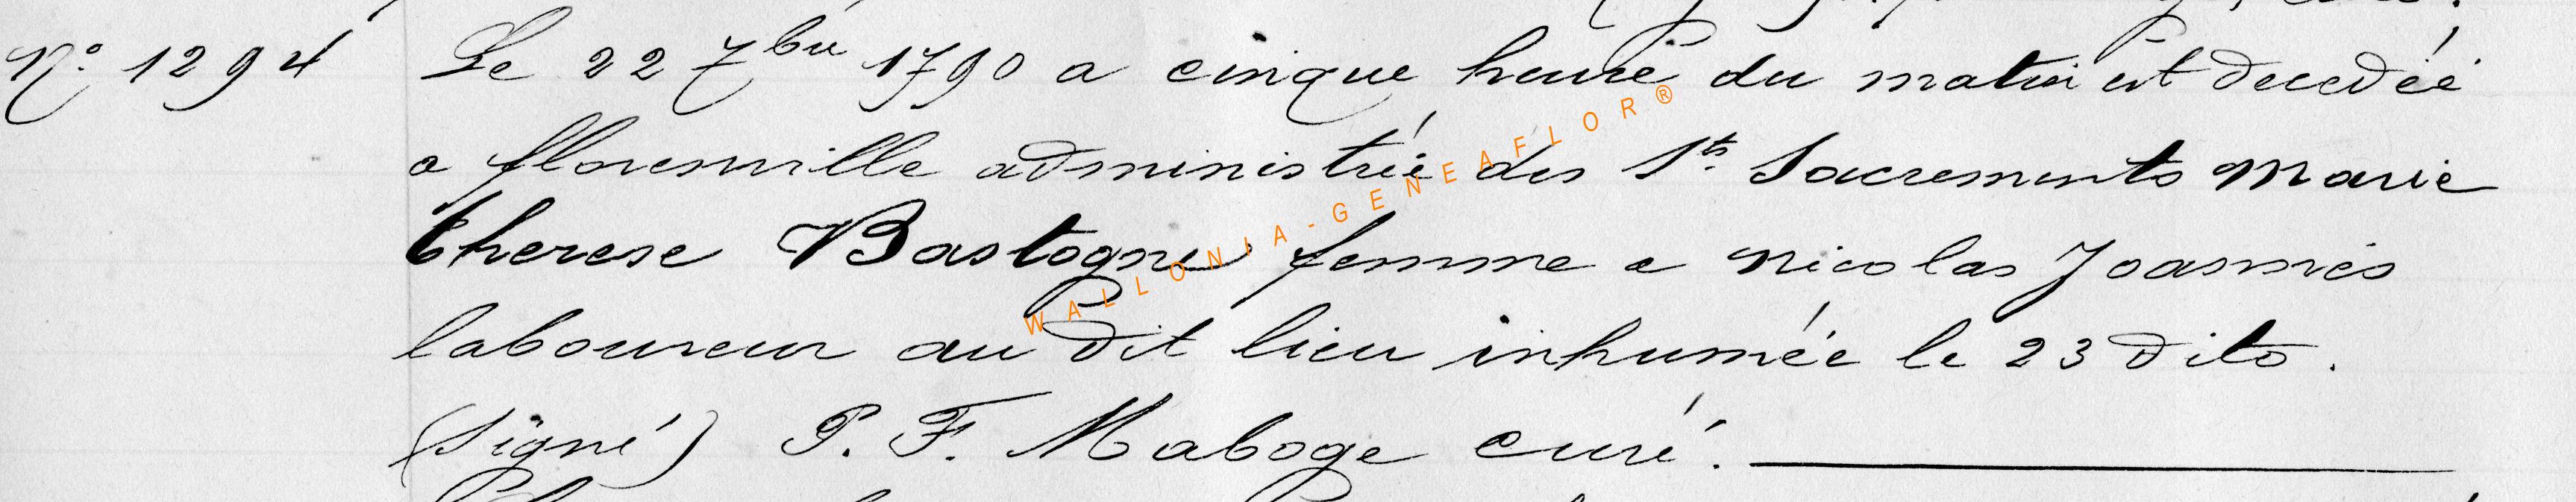 N° 1294 Le 22 7bre 1790 a cinque heure du matin est decedée
a florenville administrée des Sts Sacrements Marie
therese Bastogne femme a nicolas Joannés
laboureur au dit lieu inhumée le 23 dito.
(signé) P. F. Maboge curé.
WALLONIA-GENEAFLOR®